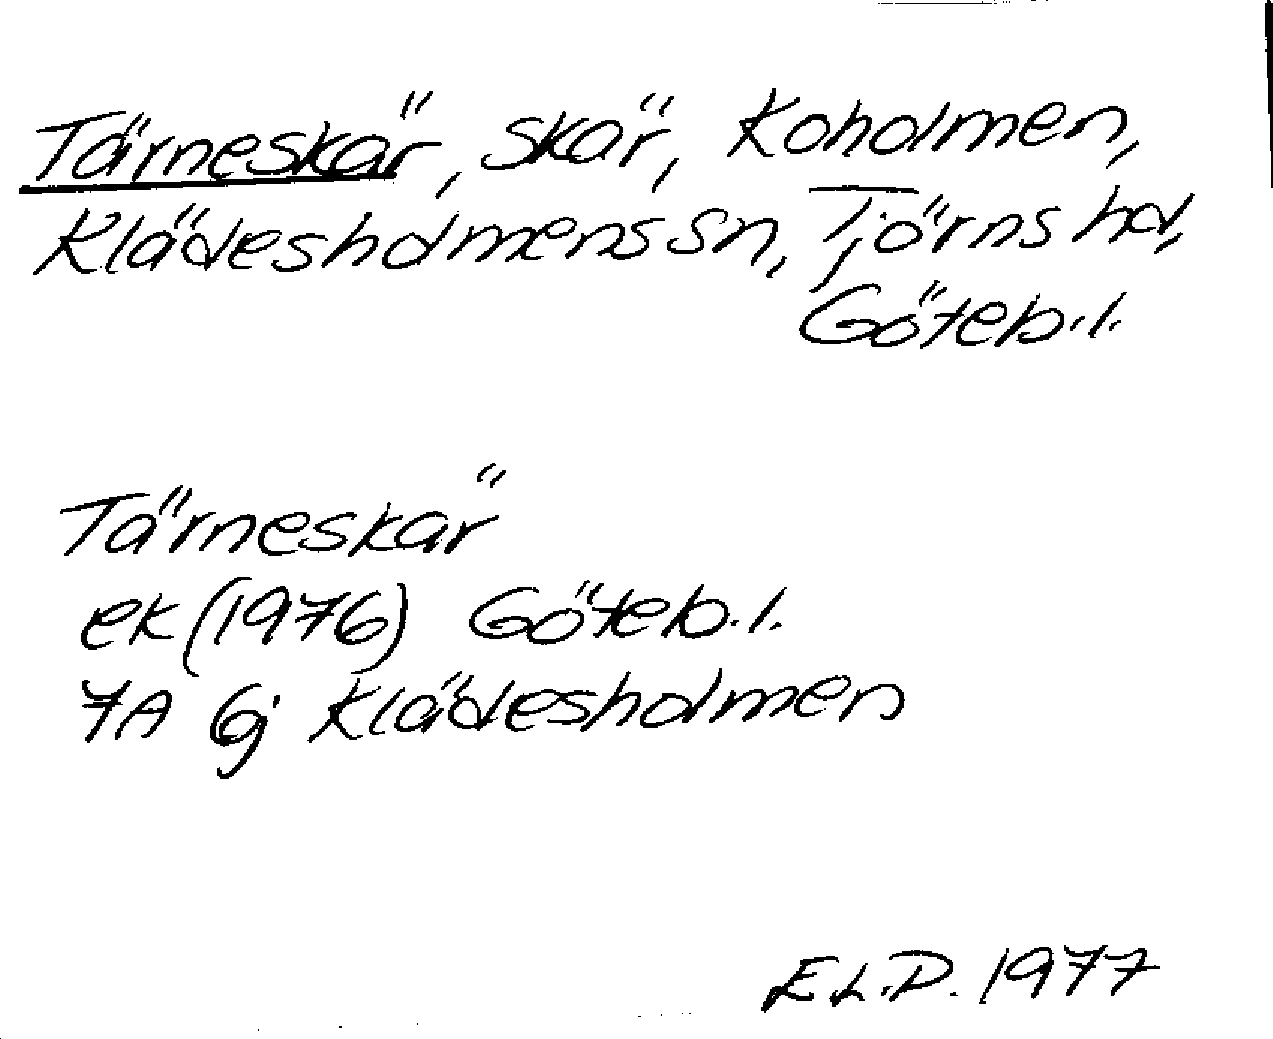 Tärneskär, skär, Koholmen,
Klädesholmens sn, Tjörns hd,
Göteb.l.
Tärneskär
ek (1976) Göteb.l.
7A 6j Klädesholmen
E.L.D. 1977